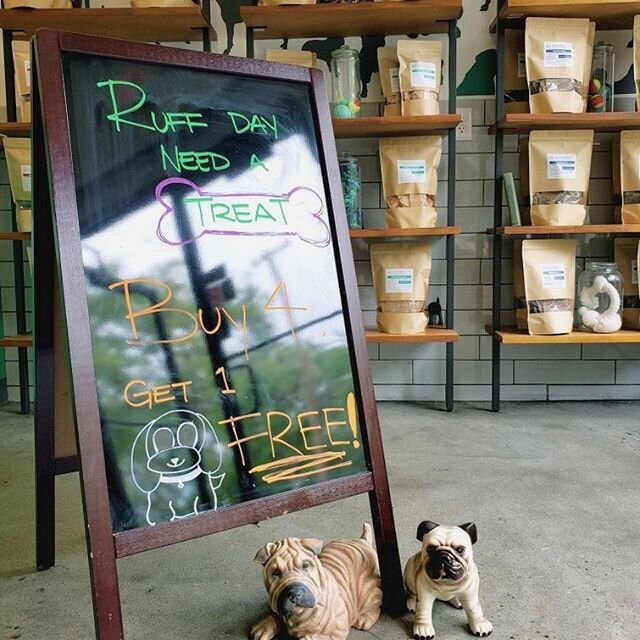 RUFF DAY
NEED A
TREAT
BUY 4
GET 1
FREE!